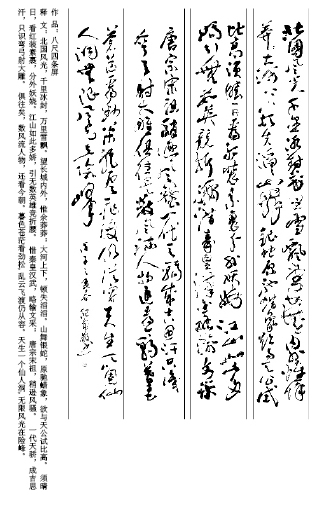 北国风光千里冰封万里雪飘望长城内外惟余莽
莽大河上下顿失滔滔山舞银蛇原驰蜡象欲与天公试
比高须晴日看红装素裹分外妖娆江山如此多
娇引无数英雄竞折腰惜秦皇汉武略输文采
唐宗宋祖稍逊风骚一代天骄成吉思汗只识
弯弓射大雕俱往矣数风流人物还看今朝暮色
苍茫看劲松乱云飞渡仍从容天生一个仙
人洞无限风光在险峰
作 品：八尺四条屏
释 文：北国风光，千里冰封，万里雪飘。望长城内外，惟余莽莽；大河上下，顿失滔滔。山舞银蛇，原驰蜡象，欲与天公试比高。须晴
日，看红装素裹，分外妖娆。江山如此多娇，引无数英雄竞折腰。惜秦皇汉武，略输文采；唐宗宋祖，稍逊风骚。一代天骄，成吉思
汗，只识弯弓射大雕。俱往矣，数风流人物，还看今朝。暮色苍茫看劲松，乱云飞渡仍从容。天生一个仙人洞，无限风光在险峰。